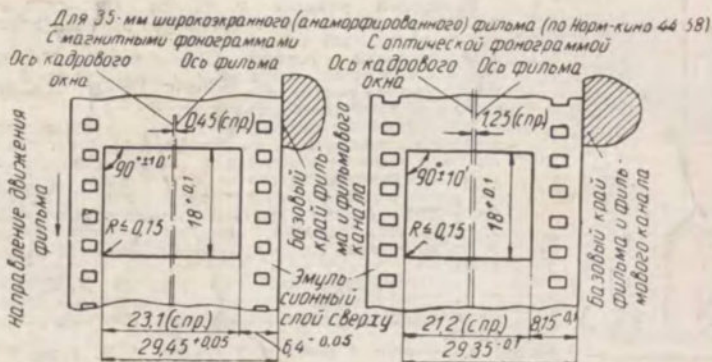 Для 35-мм широкоэкранного (анаморфированного) фильма (по Норм-кино 44-58)
С магнитными фонограммами
С оптической фонограммой
Ось кадрового окна
Ось фильма
Ось кадрового окна
Ось фильма
0,45 (спр.)
1,25 (спр.)
Направление движения фильма
90°±10'
18+0,1
R≤0,15
Базовый край фильма и фильмового канала
90°±10'
18+0,1
R≤0,15
Базовый край фильма и фильмового канала
Эмульсионный слой сверху
23,1 (спр.)
29,45+0,05
6,4-0,05
21,2 (спр.)
8,15-0,1
29,35-0,1